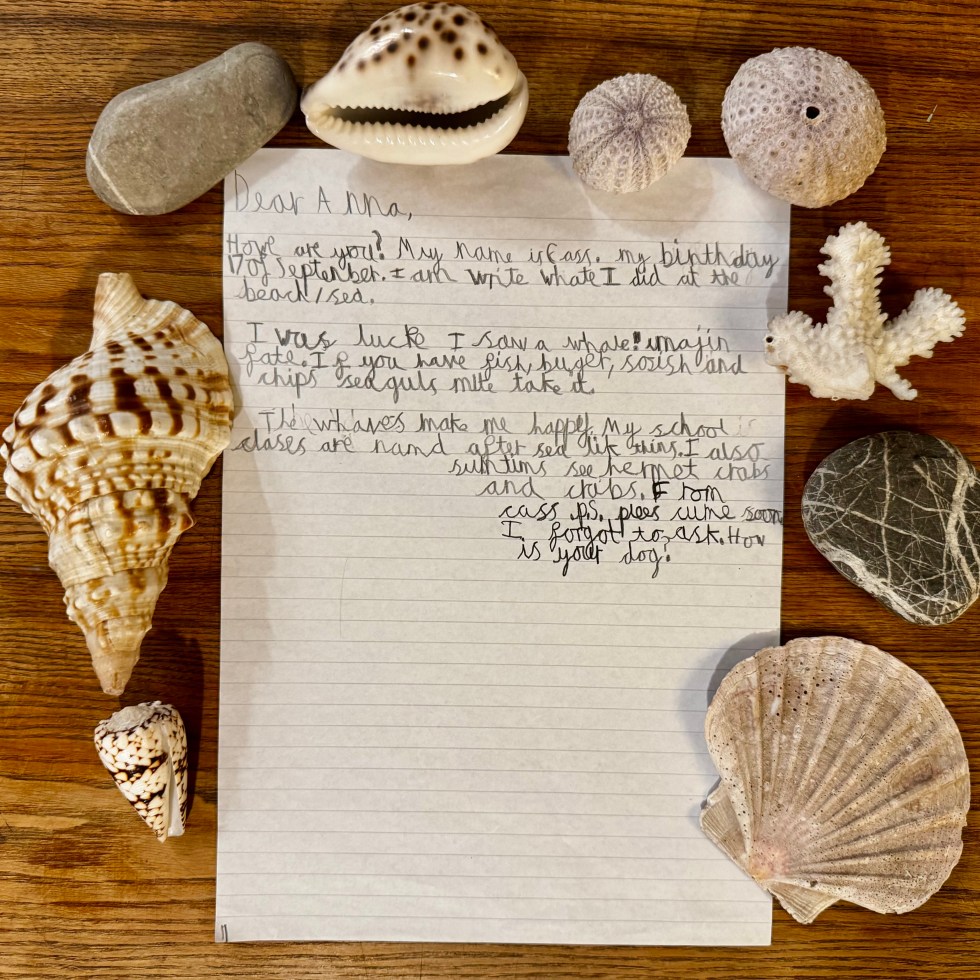 Dear Anna,
How are you? My name is Cass. my birthday
17 of September. I am write whate I did at the
beach/sea.
I was lucke I saw a whale! imajin
fate. If you have fish, buger, sosish and
chips seaguls mite take it.
The whaves make me happy. My school is
clases are namd after sea lik thins. I also
sumtims see hermet crabs
and crabs. From
cass .p.s. plees cume soon
I forgot to ask. How
is your dog?